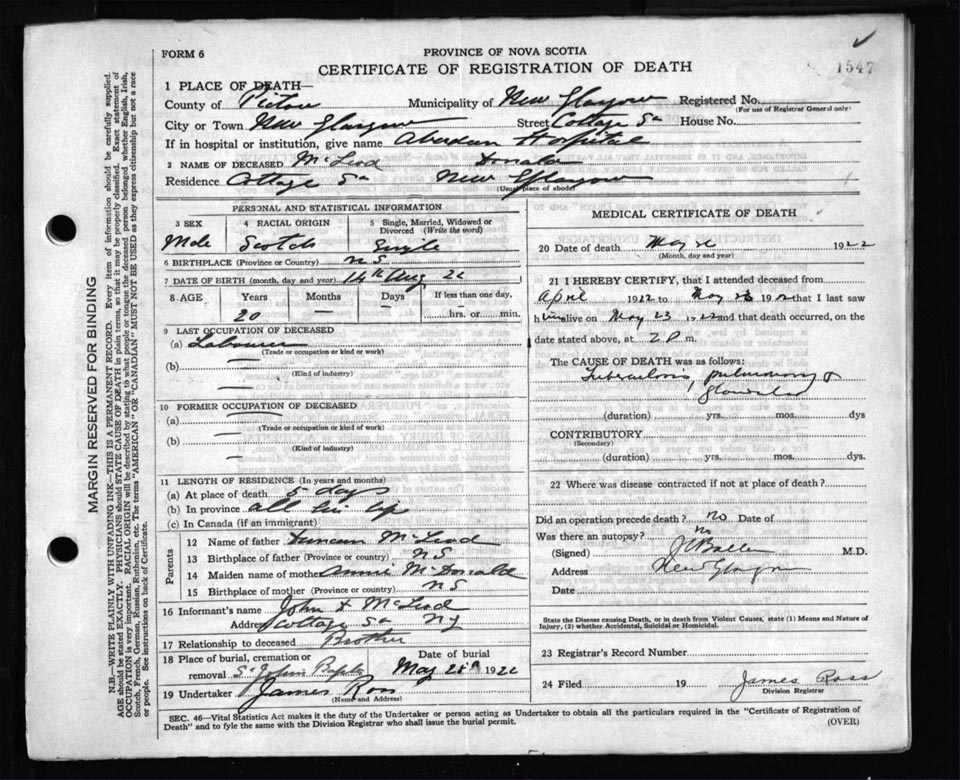 FORM 6
PROVINCE OF NOVA SCOTIA
CERTIFICATE OF REGISTRATION OF DEATH
1547
1 PLACE OF DEATH—
County of Pictou Municipality of New Glasgow Registered No.
(For use of Registrar General only)
City or Town New Glasgow Street Cottage St House No.
If in hospital or institution, give name Aberdeen Hospital
2 NAME OF DECEASED McLeod Donald
Residence Cottage St New Glasgow
(Usual place of abode)
PERSONAL AND STATISTICAL INFORMATION
3 SEX 4 RACIAL ORIGIN 5 Single, Married, Widowed or Divorced (Write the word)
Male Scotch Single
6 BIRTHPLACE (Province or Country) N S
7 DATE OF BIRTH (month, day and year) 14th Aug
8 AGE Years Months Days If less than one day,
20 — — hrs. or min.
9 LAST OCCUPATION OF DECEASED
(a) Labourer
(Trade or occupation or kind or work)
(b)
(Kind of industry)
10 FORMER OCCUPATION OF DECEASED
(a)
(Trade or occupation or kind or work)
(b)
(Kind of industry)
11 LENGTH OF RESIDENCE (In years and months)
(a) At place of death days
(b) In province all his life
(c) In Canada (if an immigrant)
Parents
12 Name of father Duncan McLeod
13 Birthplace of father (Province or country) N S
14 Maiden name of mother Annie McDonald
15 Birthplace of mother (Province or country) N S
16 Informant's name John McLeod
Address Cottage St N G
17 Relationship to deceased Brother
18 Place of burial, cremation or removal St John Date of burial May 1922
19 Undertaker James Ross
(Name and Address)
MEDICAL CERTIFICATE OF DEATH
20 Date of death May 1922
(Month, day and year)
21 I HEREBY CERTIFY, that I attended deceased from
April 1922 to May 1922 that I last saw
him alive on May 23 1922 and that death occurred, on the
date stated above, at 2 P m.
The CAUSE OF DEATH was as follows:
Tuberculosis, pulmonary &
glandular
(duration) yrs. mos. dys
CONTRIBUTORY
(Secondary)
(duration) yrs. mos. dys.
22 Where was disease contracted if not at place of death?
Did an operation precede death? no Date of
Was there an autopsy? No
(Signed) M.D.
Address New Glasgow
Date
State the Disease causing Death, or in death from Violent Causes, state (1) Means and Nature of
Injury, (2) whether Accidental, Suicidal or Homicidal.
23 Registrar's Record Number
24 Filed 19 James Ross
Division Registrar
SEC. 46—Vital Statistics Act makes it the duty of the Undertaker or person acting as Undertaker to obtain all the particulars required in the "Certificate of Registration of
Death" and to fyle the same with the Division Registrar who shall issue the burial permit.
(OVER)
MARGIN RESERVED FOR BINDING
N.B.—WRITE PLAINLY WITH UNFADING INK—THIS IS A PERMANENT RECORD. Every item of information should be carefully supplied.
AGE should be stated EXACTLY. PHYSICIANS should STATE CAUSE OF DEATH in plain terms, so that it may be properly classified. Exact statement of
OCCUPATION is very important. RACIAL ORIGIN will be described by stating to what people or tongue the deceased person belonged whether English, Irish,
Scotch, French, German, Russian, Ruthenian, etc. The terms "AMERICAN" OR "CANADIAN" MUST NOT BE USED as they express citizenship but not a race
or people. See instructions on back of Certificate.